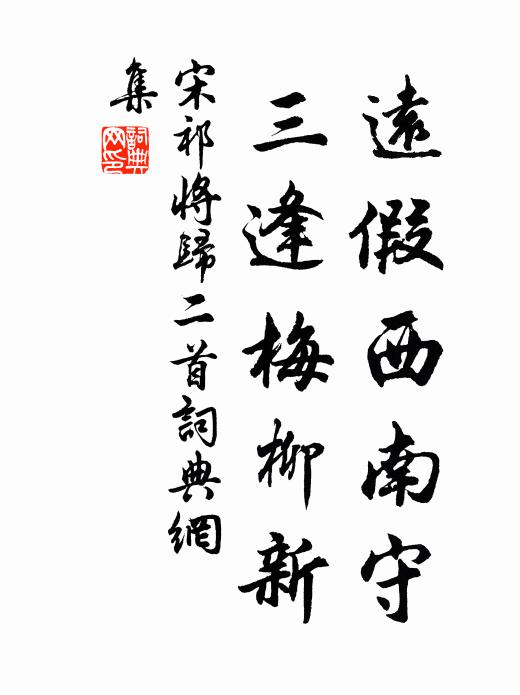 遠假西南守
三逢梅柳新
宋祁將歸二首詞典網
集
詞典網印